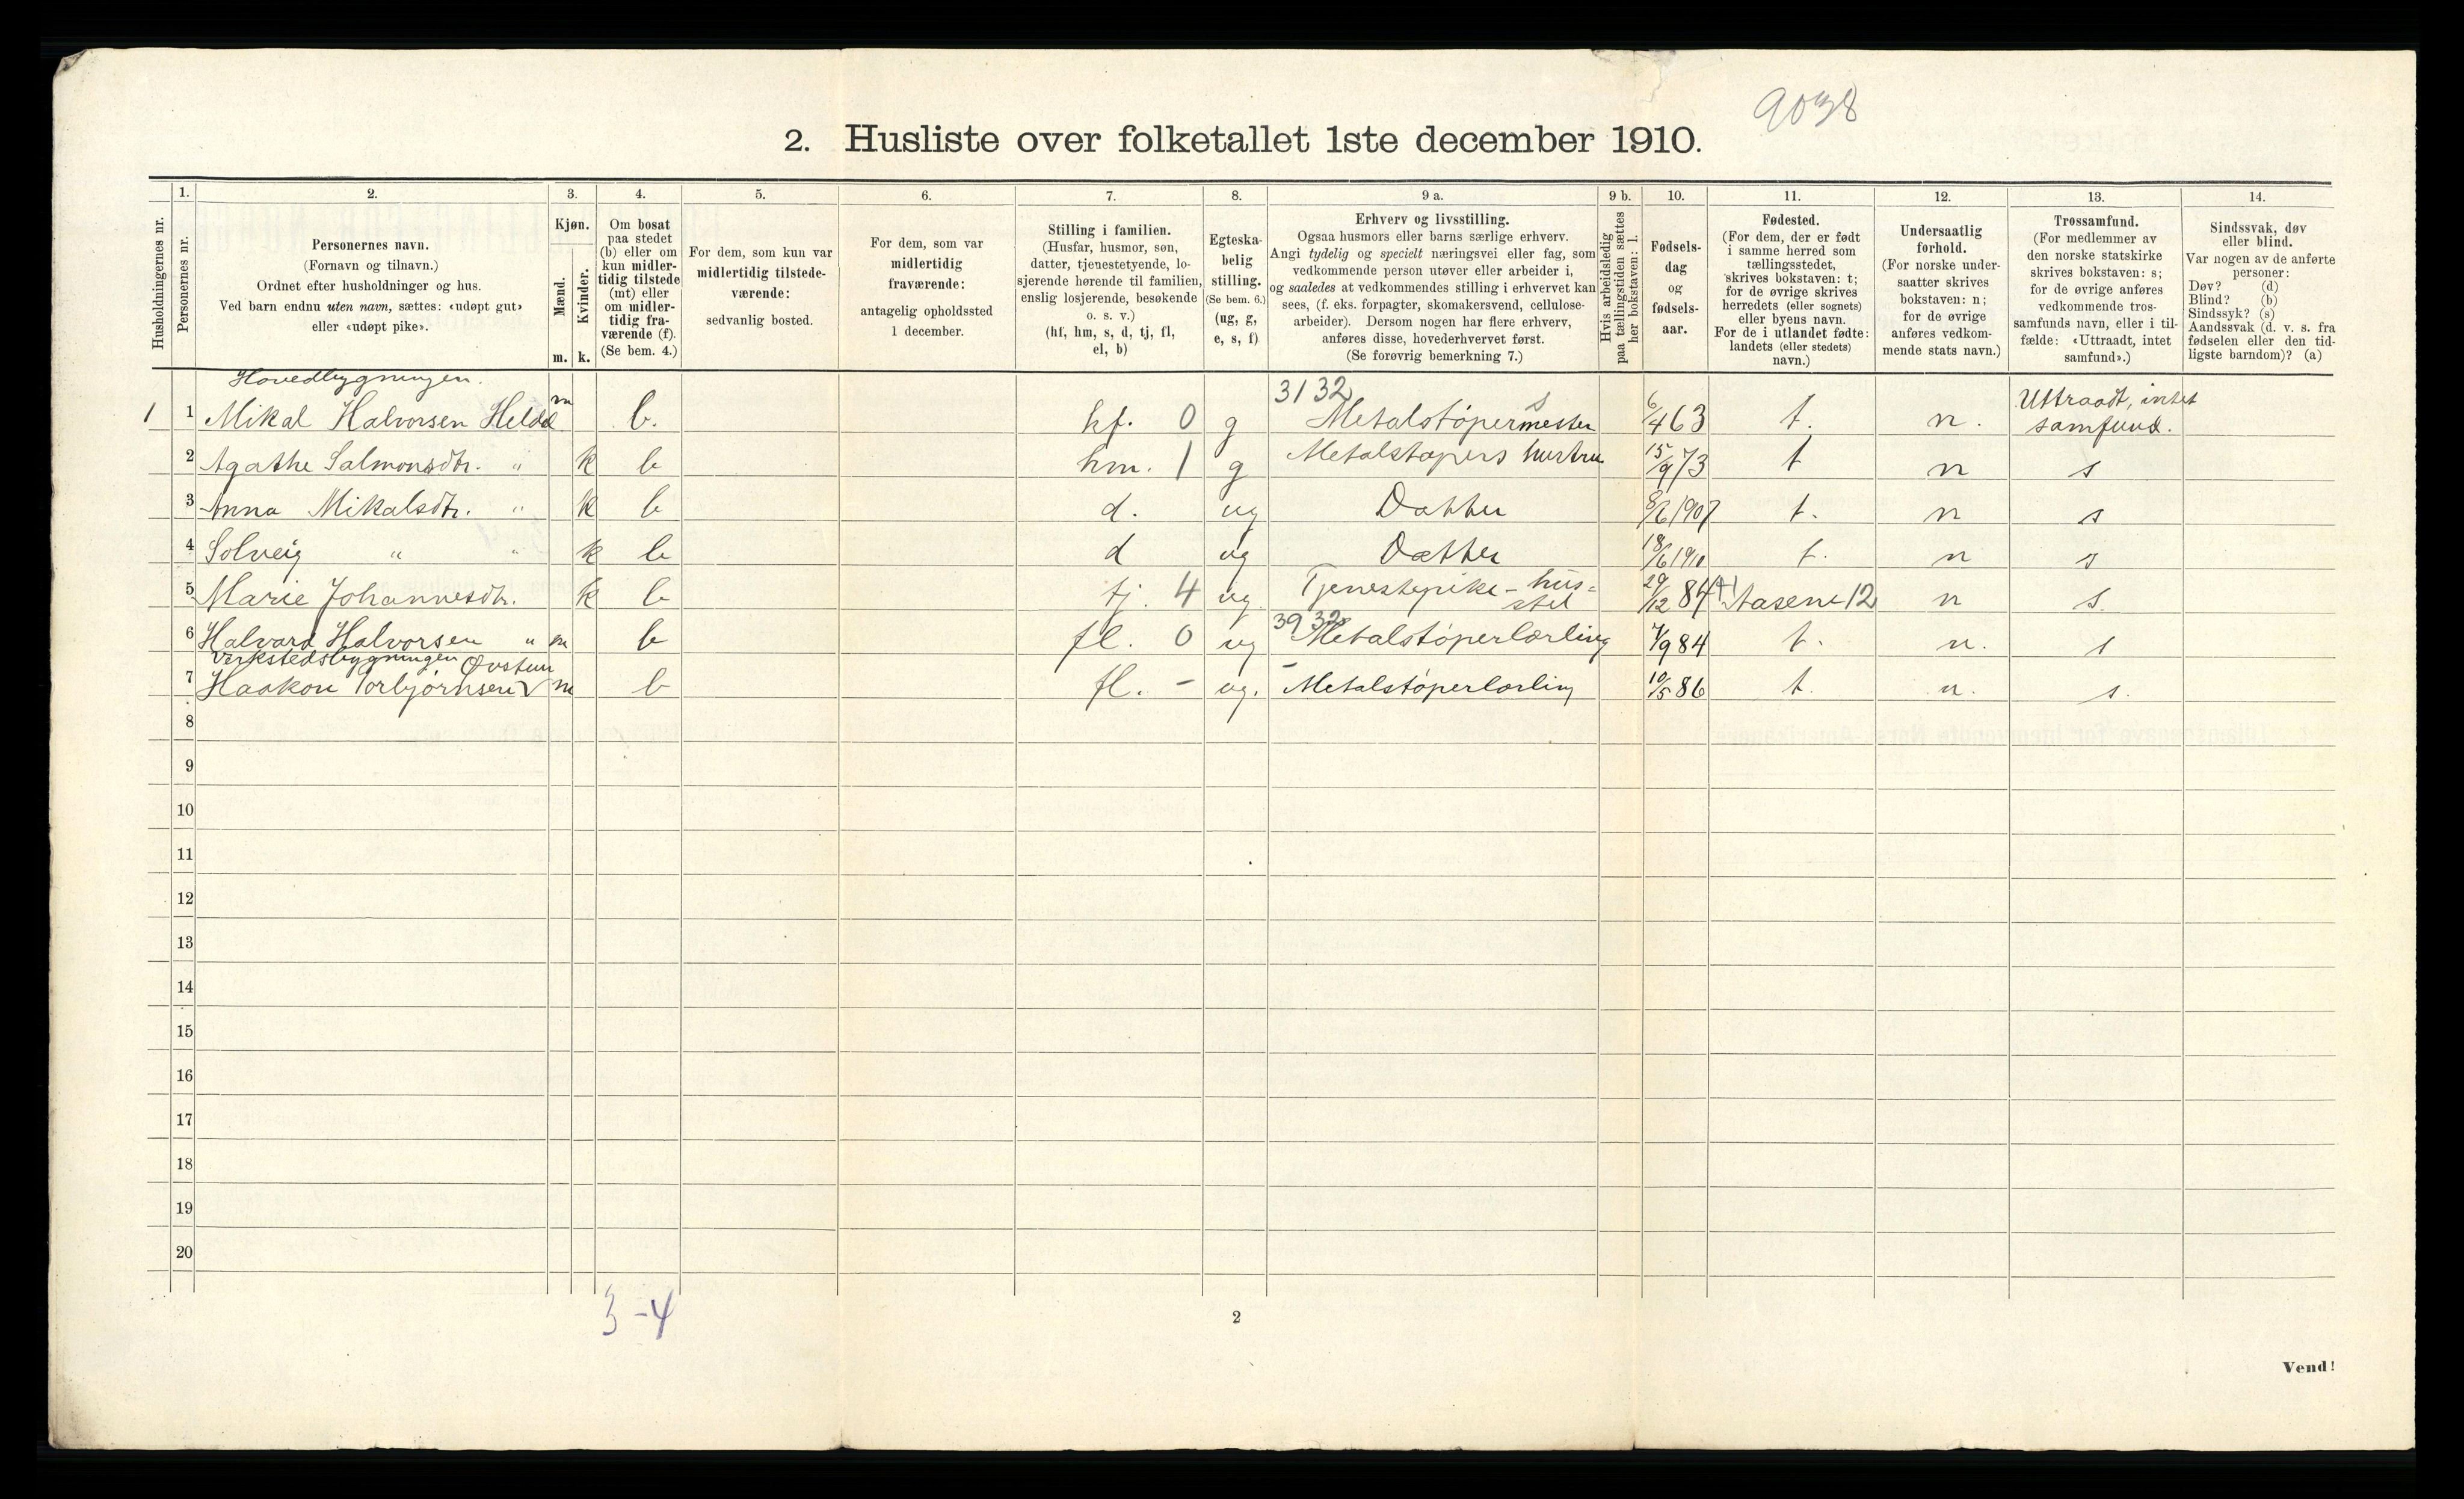 9038
2. Husliste over folketallet 1ste december 1910.
Husholdningernes nr.
1.
Personernes nr.
2.
Personernes navn.
(Fornavn og tilnavn.)
Ordnet efter husholdninger og hus.
Ved barn endnu uten navn, sættes: «udøpt gut»
eller «udøpt pike».
3.
Kjøn.
Mænd.
Kvinder.
m. k.
4.
Om bosat
paa stedet
(b) eller om
kun midler-
tidig tilstede
(mt) eller
om midler-
tidig fra-
værende (f).
(Se bem. 4.)
5.
For dem, som kun var
midlertidig tilstede-
værende:
sedvanlig bosted.
6.
For dem, som var
midlertidig
fraværende:
antagelig opholdssted
1 december.
7.
Stilling i familien.
(Husfar, husmor, søn,
datter, tjenestetyende, lo-
sjerende hørende til familien,
enslig losjerende, besøkende
o. s. v.)
(hf, hm, s, d, tj, fl,
el, b)
8.
Egteska-
belig
stilling.
(Se bem. 6.)
(ug, g,
e, s, f)
9 a.
Erhverv og livsstilling.
Ogsaa husmors eller barns særlige erhverv.
Angi tydelig og specielt næringsvei eller fag, som
vedkommende person utøver eller arbeider i,
og saaledes at vedkommendes stilling i erhvervet kan
sees, (f. eks. forpagter, skomakersvend, cellulose-
arbeider). Dersom nogen har flere erhverv,
anføres disse, hovederhvervet først.
(Se forøvrig bemerkning 7.)
9 b.
Hvis arbeidsledig
paa tællingstiden sættes
her bokstaven: l.
10.
Fødsels-
dag
og
fødsels-
aar.
11.
Fødested.
(For dem, der er født
i samme herred som
tællingsstedet,
skrives bokstaven: t;
for de øvrige skrives
herredets (eller sognets)
eller byens navn.
For de i utlandet fødte:
landets (eller stedets)
navn.)
12.
Undersaatlig
forhold.
(For norske under-
saatter skrives
bokstaven: n;
for de øvrige
anføres vedkom-
mende stats navn.)
13.
Trossamfund.
(For medlemmer av
den norske statskirke
skrives bokstaven: s;
for de øvrige anføres
vedkommende tros-
samfunds navn, eller i til-
fælde: «Uttraadt, intet
samfund».)
14.
Sindssvak, døv
eller blind.
Var nogen av de anførte
personer:
Døv? (d)
Blind? (b)
Sindssyk? (s)
Aandssvak (d. v. s. fra
fødselen eller den tid-
ligste barndom)? (a)
Hovedbygningen.
3132
1 1 Mikal Halvorsen Heldal m b. hf. 0 g Metalstøpermester 6/4 63 t. n. Uttraadt, intet
samfund.
2 Agathe Salmonsdtr. " k b hm. 1 g Metalstøpers hustru 15/9 73 t n s
3 Anna Mikalsdtr. " k b d. ug Datter 8/6 1907 t. n s
4 Solveig " " k b d ug Datter 18/6 1910 t. n s
5 Marie Johannesdtr. k b tj. 4 ug Tjenestepike - hus=
stel 29/12 84 Aasene 12 n s.
3932
6 Halvard Halvorsen " m b fl. 0 ug Metalstøperlærling 7/9 84 t. n. s
Verkstedsbygningen Øvstun
7 Haakon Torbjørnsen m b fl. - ug. Metalstøperlærling 10/5 86 t. n. s.
8
9
10
11
12
13
14
15
16
17
18
19
20
3-4
2
Vend!